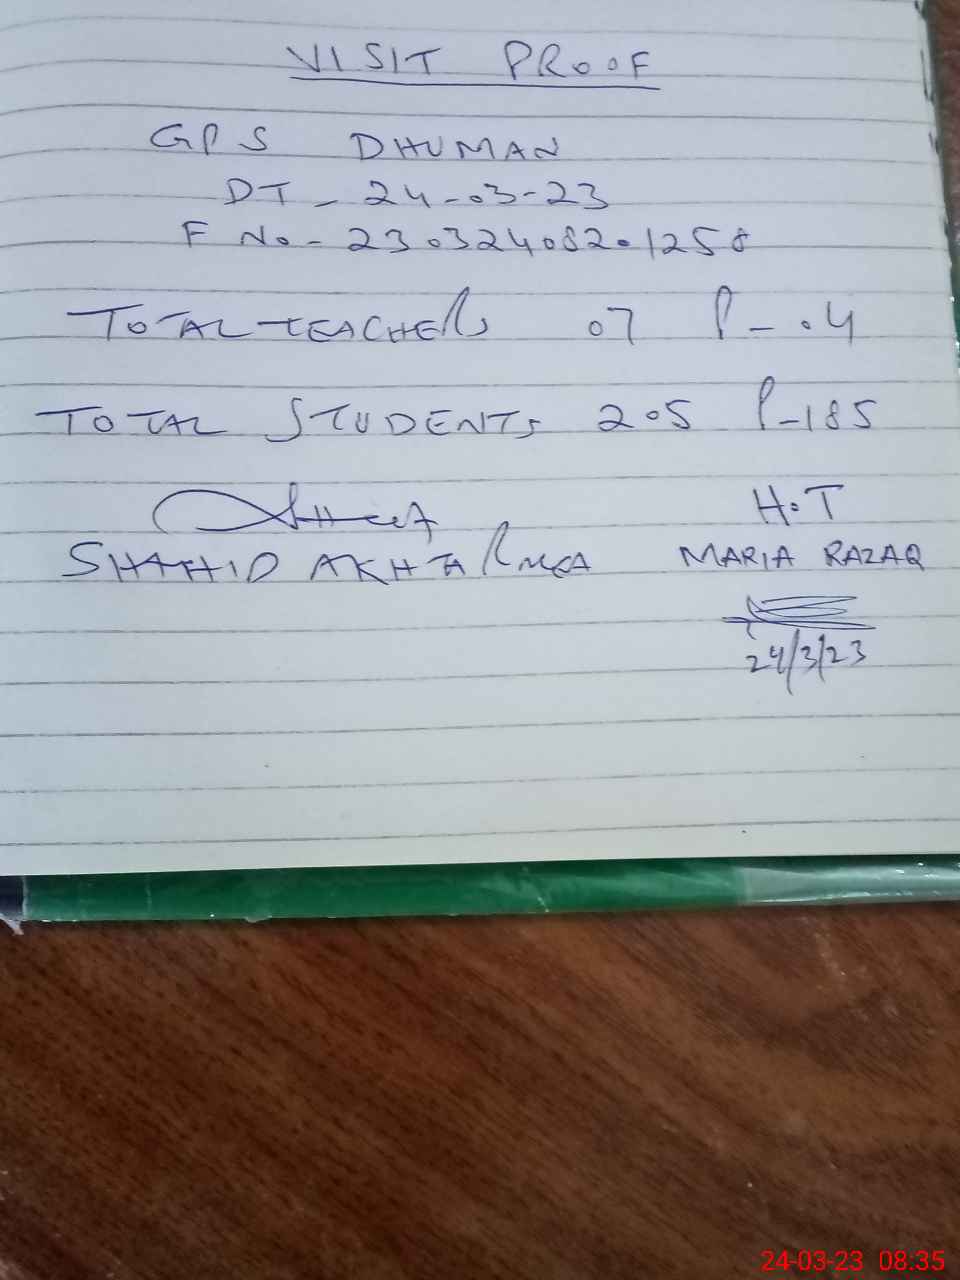 VISIT PROOF
GPS DHUMAN
DT - 24-03-23
F No - 23032408201258
TOTAL TEACHERS 07 P - 04
TOTAL STUDENTS 205 P-185
H.T
SHAHID AKHTAR MEA MARIA RAZAQ
24/3/23
24-03-23 08:35